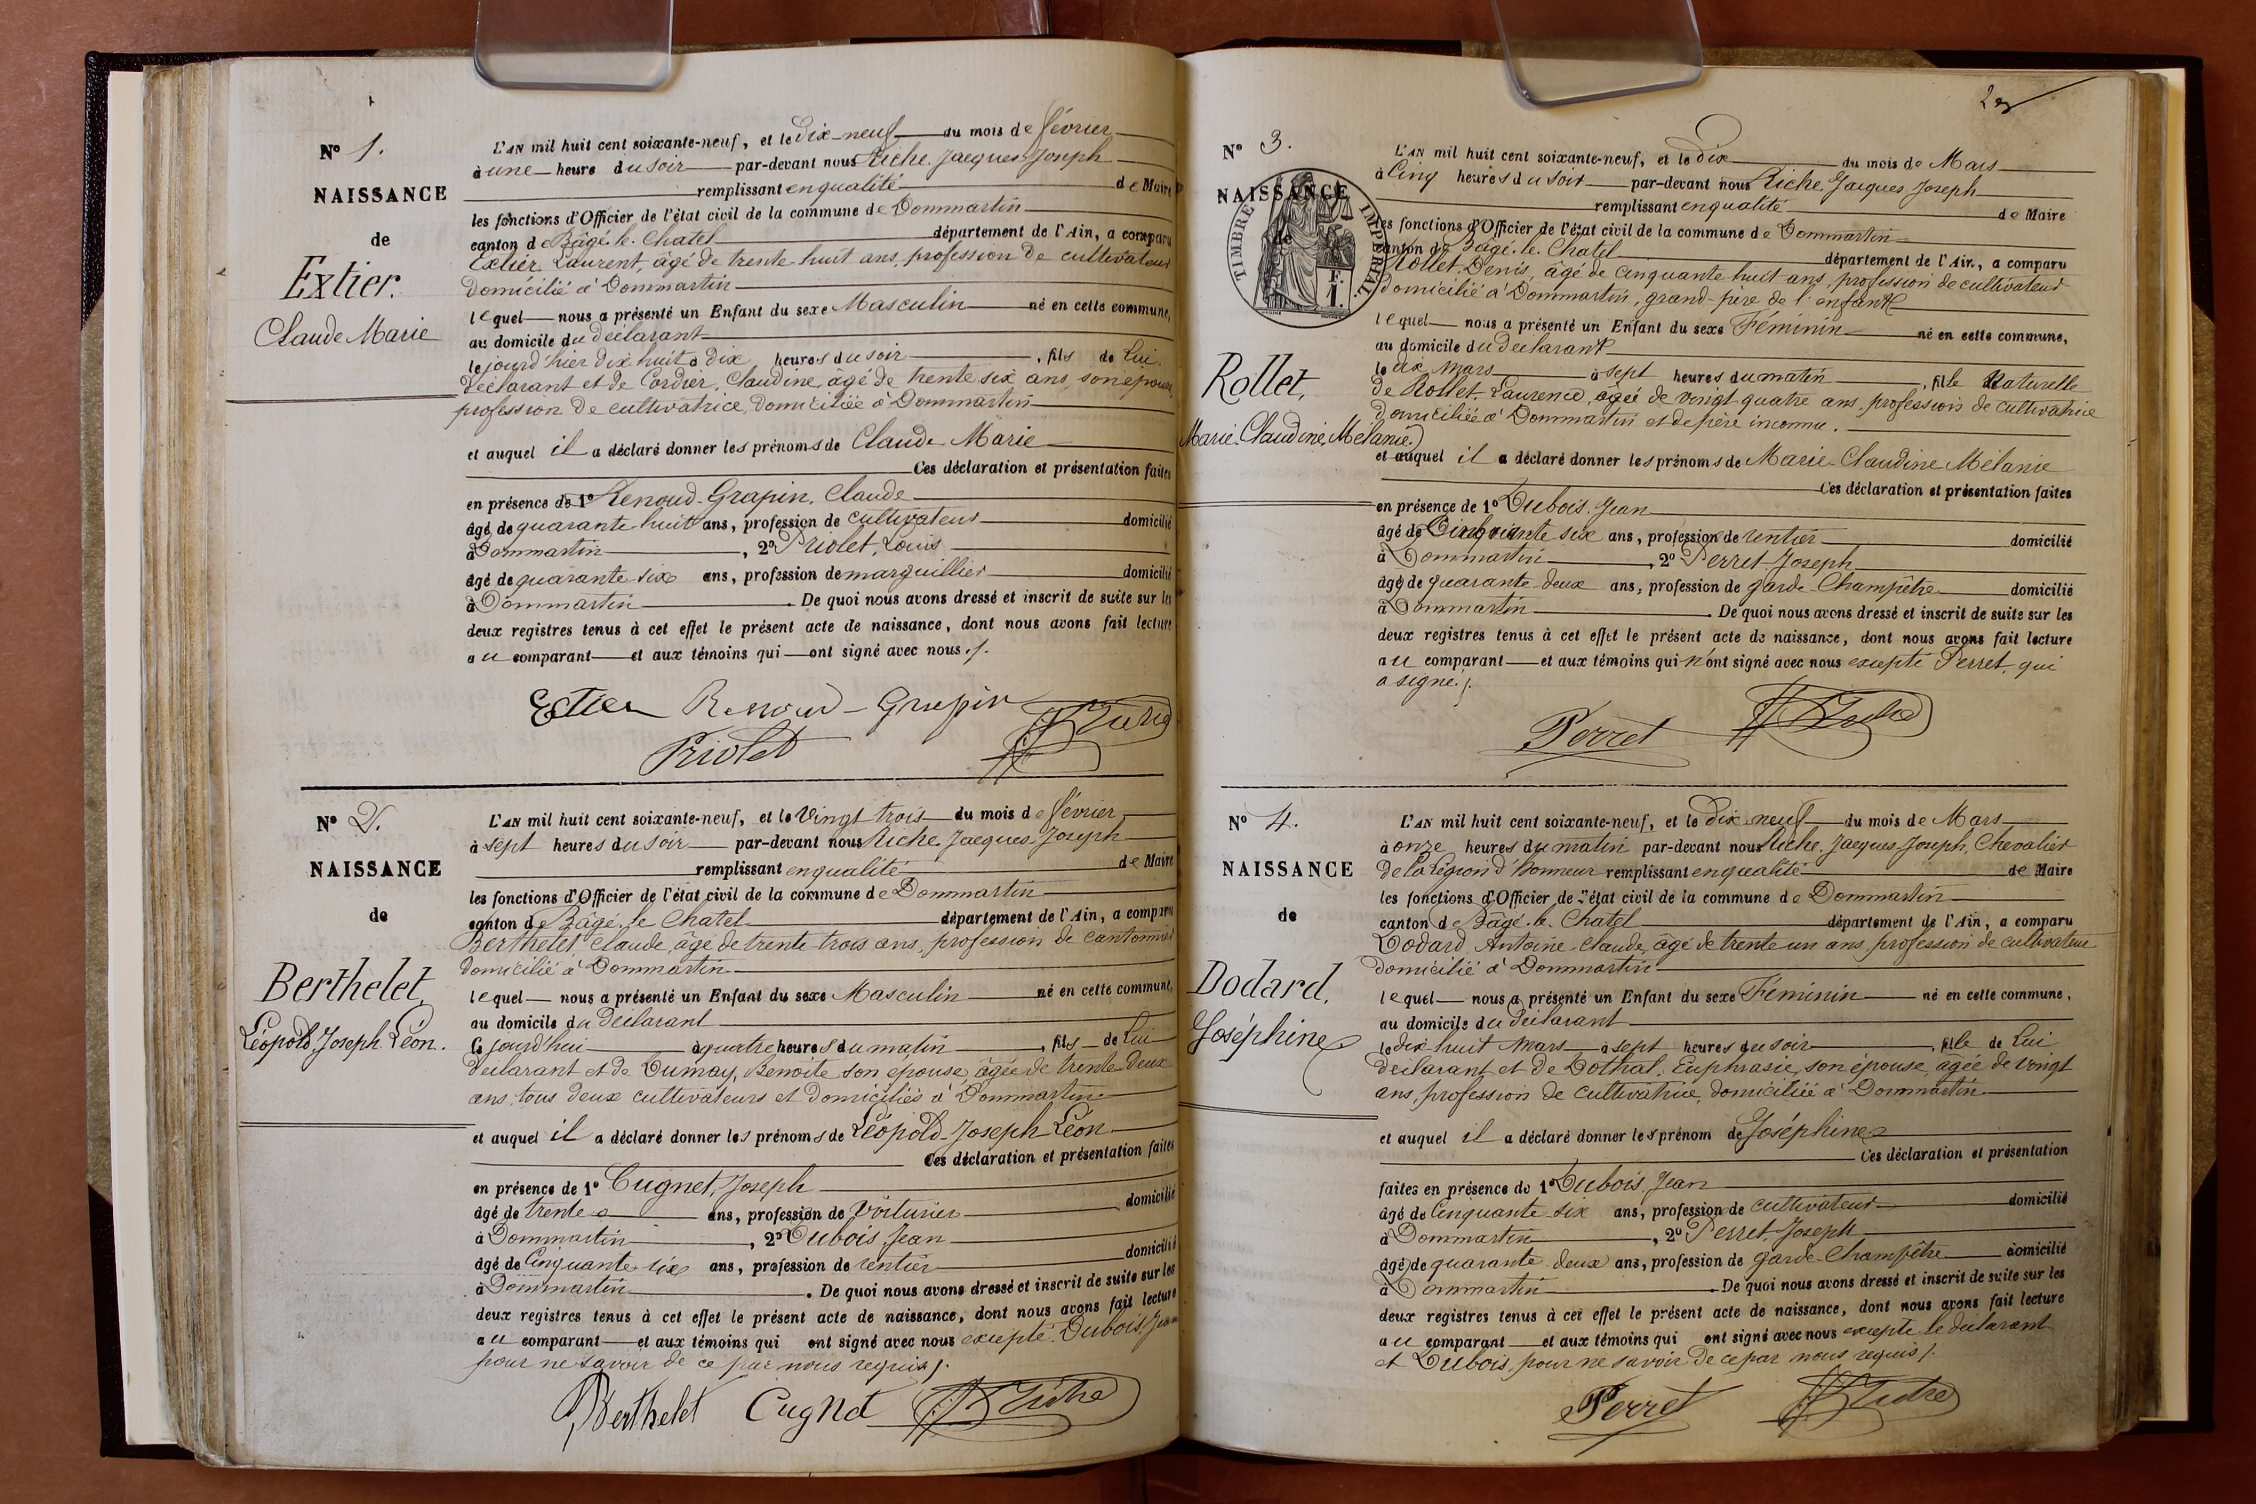 N° 1.
NAISSANCE
de
Extier.
Claude Marie
L'AN mil huit cent soixante-neuf, et le dix-neuf du mois de février
à une heure du soir par-devant nous Riche, Jacques Joseph
remplissant en qualité de Maire
les fonctions d'Officier de l'état civil de la commune de Dommartin
canton de Bâgé-le-Chatel département de l'Ain, a comparu
Extier, Laurent, âgé de trente-huit ans, profession de cultivateur
domicilié à Dommartin
lequel nous a présenté un Enfant du sexe Masculin né en cette commune,
au domicile du déclarant
le jourd'hier dix huit à dix heures du soir, fils de Lui
déclarant et de Cordier, Claudine, âgé de trente six ans, son épouse,
profession de cultivatrice, domiciliée à Dommartin
et auquel il a déclaré donner les prénoms de Claude Marie
Ces déclaration et présentation faites
en présence de 1° Renoud-Grapin, Claude
âgé de quarante huit ans, profession de cultivateur domicilié
à Dommartin, 2° Priolet, Louis
âgé de quarante six ans, profession de marguillier domicilié
à Dommartin. De quoi nous avons dressé et inscrit de suite sur les
deux registres tenus à cet effet le présent acte de naissance, dont nous avons fait lecture
au comparant et aux témoins qui ont signé avec nous ./.
Extier Renoud-Grapin Riche
Priolet
N° 2.
NAISSANCE
de
Berthelet,
Léopold Joseph Léon.
L'AN mil huit cent soixante-neuf, et le vingt trois du mois de février
à sept heures du soir par-devant nous Riche, Jacques Joseph
remplissant en qualité de Maire
les fonctions d'Officier de l'état civil de la commune de Dommartin
canton de Bâgé-le-Chatel département de l'Ain, a comparu
Berthelet, Claude, âgé de trente trois ans, profession de cantonnier
domicilié à Dommartin
lequel nous a présenté un Enfant du sexe Masculin né en cette commune,
au domicile du déclarant
le jourd'hui à quatre heures du matin, fils de Lui
déclarant et de Dumay, Benoite son épouse, âgée de trente deux
ans, tous deux cultivateurs et domiciliés à Dommartin
et auquel il a déclaré donner les prénoms de Léopold-Joseph Léon
Ces déclaration et présentation faites
en présence de 1° Cugnet, Joseph
âgé de trente ans, profession de voiturier domicilié
à Dommartin, 2° Dubois, Jean
âgé de Cinquante six ans, profession de rentier domicilié
à Dommartin. De quoi nous avons dressé et inscrit de suite sur les
deux registres tenus à cet effet le présent acte de naissance, dont nous avons fait lecture
au comparant et aux témoins qui ont signé avec nous excepté Dubois, Jean
pour ne savoir de ce par nous requis ./.
Berthelet Cugnet Riche
2
N° 3.
NAISSANCE
de
TIMBRE IMPÉRIAL
F.
1.
Rollet,
Marie-Claudine Mélanie.
L'AN mil huit cent soixante-neuf, et le dix du mois de Mars
à Cinq heures du soir par-devant nous Riche, Jacques Joseph
remplissant en qualité de Maire
les fonctions d'Officier de l'état civil de la commune de Dommartin
canton de Bâgé-le-Chatel département de l'Ain, a comparu
Rollet, Denis, âgé de cinquante huit ans, profession de cultivateur
domicilié à Dommartin, grand-père de l'enfant
lequel nous a présenté un Enfant du sexe Féminin né en cette commune,
au domicile du déclarant
le dix Mars à sept heures du matin, fille Naturelle
de Rollet, Laurence, âgée de vingt quatre ans, profession de cultivatrice
domiciliée à Dommartin et de père inconnu.
et auquel il a déclaré donner les prénoms de Marie-Claudine Mélanie
Ces déclaration et présentation faites
en présence de 1° Dubois, Jean
âgé de Cinquante six ans, profession de rentier domicilié
à Dommartin, 2° Perret, Joseph
âgé de quarante-deux ans, profession de garde-Champêtre domicilié
à Dommartin. De quoi nous avons dressé et inscrit de suite sur les
deux registres tenus à cet effet le présent acte de naissance, dont nous avons fait lecture
au comparant et aux témoins qui n'ont signé avec nous excepté Perret, qui
a signé ./.
Perret Riche
N° 4.
NAISSANCE
de
Dodard,
Joséphine
L'AN mil huit cent soixante-neuf, et le Dix neuf du mois de Mars
à onze heures du matin par-devant nous Riche, Jacques Joseph, Chevalier
de la Légion d'honneur remplissant en qualité de Maire
les fonctions d'Officier de l'état civil de la commune de Dommartin
canton de Bâgé-le-Chatel département de l'Ain, a comparu
Dodard, Antoine-Claude, âgé de trente un ans, profession de cultivateur
domicilié à Dommartin
lequel nous a présenté un Enfant du sexe Féminin né en cette commune,
au domicile du déclarant
le dix huit Mars à sept heures du soir, fille de Lui
déclarant et de Dothal, Euphrasie, son épouse, âgée de vingt
ans, profession de cultivatrice, domiciliée à Dommartin
et auquel il a déclaré donner les prénom de Joséphine
Ces déclaration et présentation
faites en présence de 1° Dubois, Jean
âgé de Cinquante six ans, profession de cultivateur domicilié
à Dommartin, 2° Perret, Joseph
âgé de quarante deux ans, profession de garde-Champêtre domicilié
à Dommartin. De quoi nous avons dressé et inscrit de suite sur les
deux registres tenus à cet effet le présent acte de naissance, dont nous avons fait lecture
au comparant et aux témoins qui ont signé avec nous excepté le déclarant
et Dubois, pour ne savoir de ce par nous requis ./.
Perret Riche